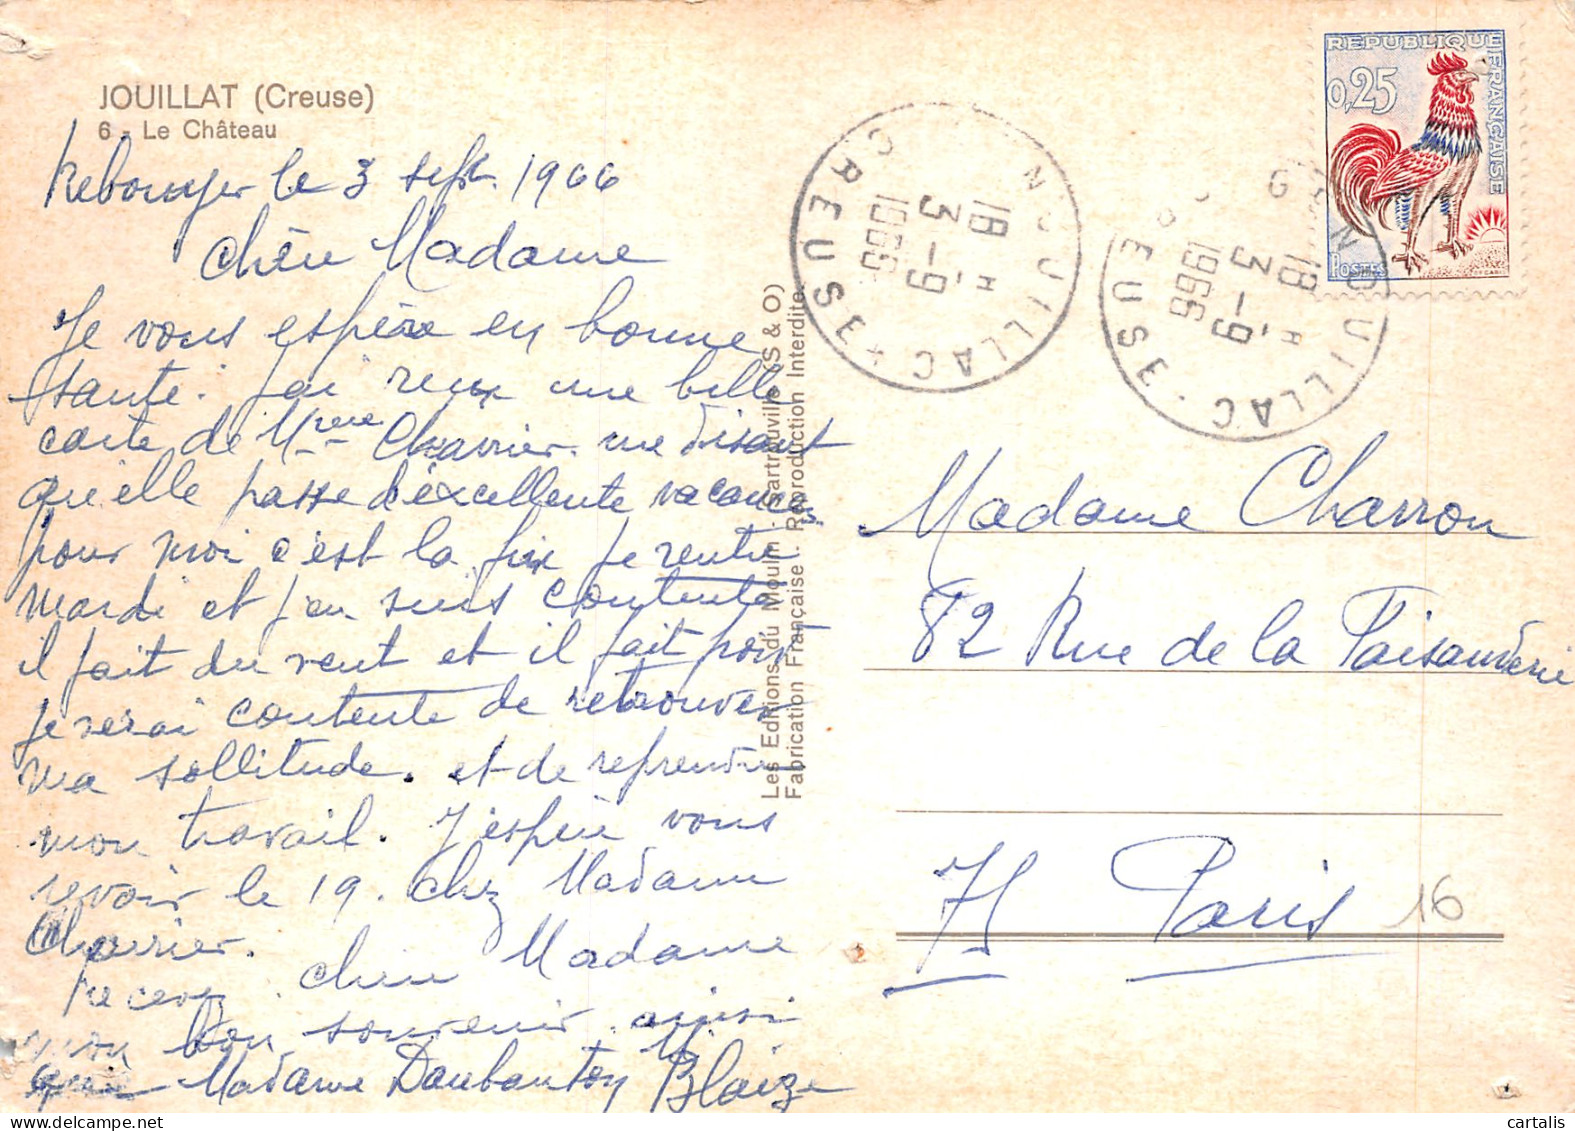 JOUILLAT (Creuse)
6 - Le Château
le 3 sept. 1966
Chère Madame
Je vous espère en bonne
santé. j'ai reçu une belle
carte de Mme Charrier me disant
qu'elle passe d'éxcellente vacances
pour moi c'est la fin je rentre
mardi et j'en suis contente
il fait du vent et il fait froid
je serai contente de retrouver
ma sollitude. et de reprendre
mon travail. J'espère vous
revoir le 19. chez Madame
Charrier.
recevez chère Madame
mon bon souvenir ainsi
que Madame Daubanton
M. Blaize
Les Editions du Moulin - Sartrouville (S & O)
Fabrication Française - Reproduction Interdite.
NOUZILLAC
CREUSE
18 H
3 - 9
1966
NOUZILLAC
CREUSE
18 H
3 - 9
1966
REPUBLIQUE FRANÇAISE
0,25
POSTES
Madame Charron
82 Rue de la Faisanderie
75 Paris 16
cartalis